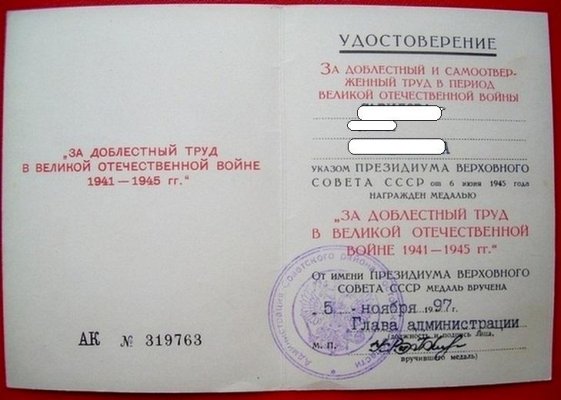 „ЗА ДОБЛЕСТНЫЙ ТРУД
В ВЕЛИКОЙ ОТЕЧЕСТВЕННОЙ ВОЙНЕ
1941—1945 гг.“
АК № 319763
УДОСТОВЕРЕНИЕ
ЗА ДОБЛЕСТНЫЙ И САМООТВЕР-
ЖЕННЫЙ ТРУД В ПЕРИОД
ВЕЛИКОЙ ОТЕЧЕСТВЕННОЙ ВОЙНЫ
УКАЗОМ ПРЕЗИДИУМА ВЕРХОВНОГО
СОВЕТА СССР от 6 июня 1945 года
НАГРАЖДЕН МЕДАЛЬЮ
„ЗА ДОБЛЕСТНЫЙ ТРУД
В ВЕЛИКОЙ ОТЕЧЕСТВЕННОЙ
ВОЙНЕ 1941—1945 гг.“
От имени ПРЕЗИДИУМА ВЕРХОВНОГО
СОВЕТА СССР МЕДАЛЬ ВРУЧЕНА
5 ноября 1997 г.
Глава администрации
должность и подпись лица,
М. П.
вручившего медаль)
Администрация Советского района